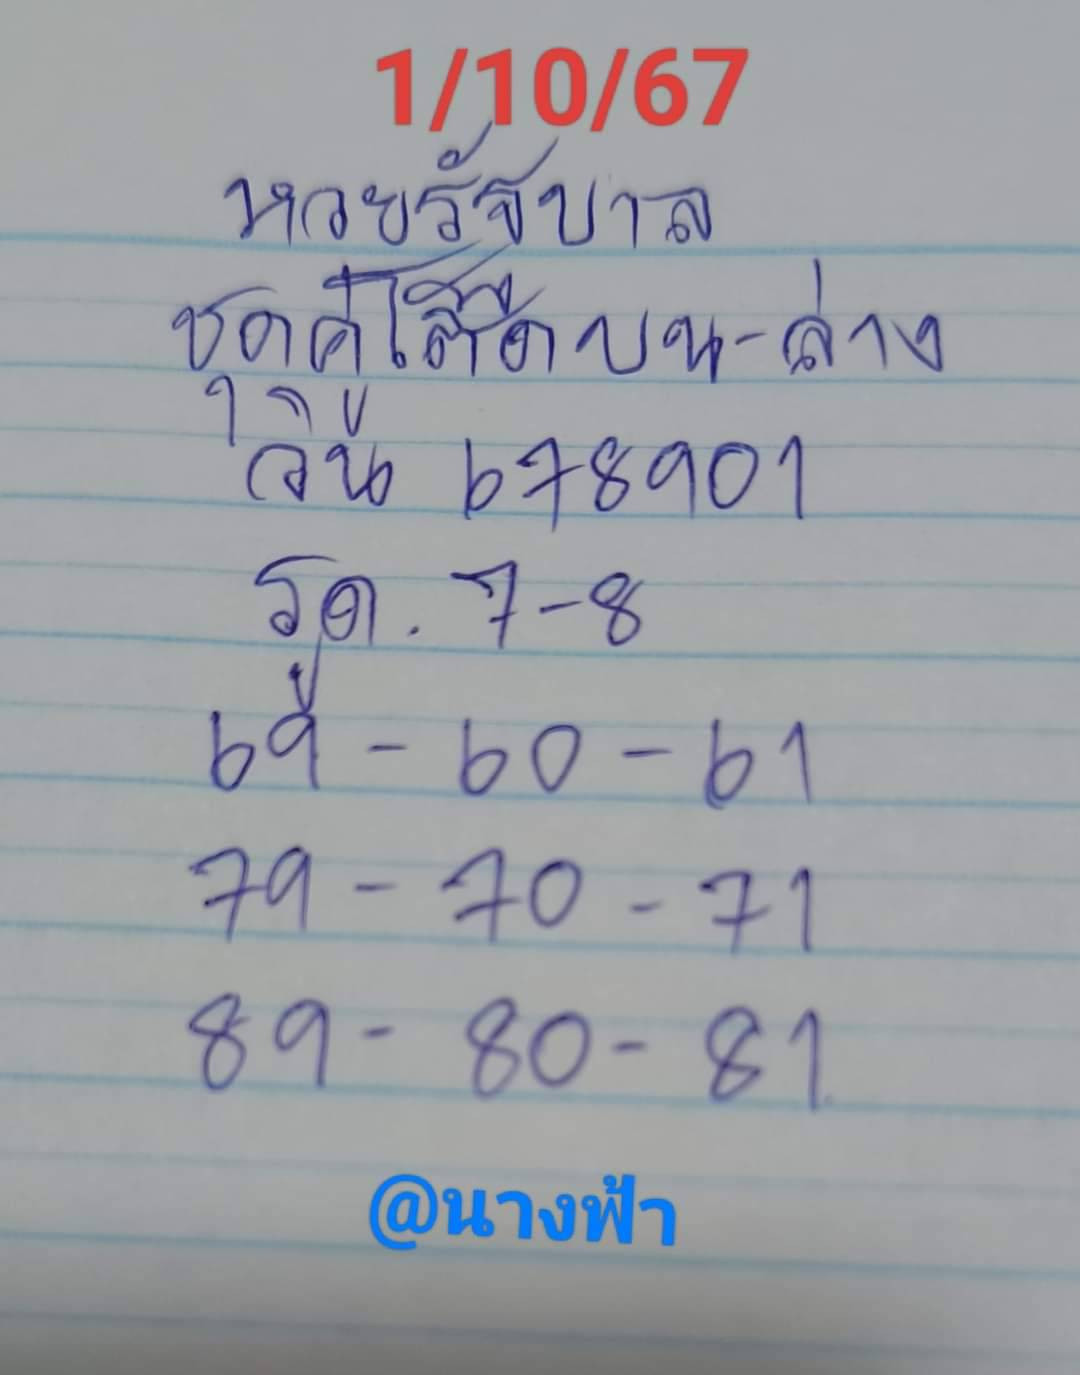 1/10/67
หวยรัฐบาล
บน-ล่าง
วิน 678901
รูด. 7-8
69-60-61
79-70-71
89-80-81
@นางฟ้า